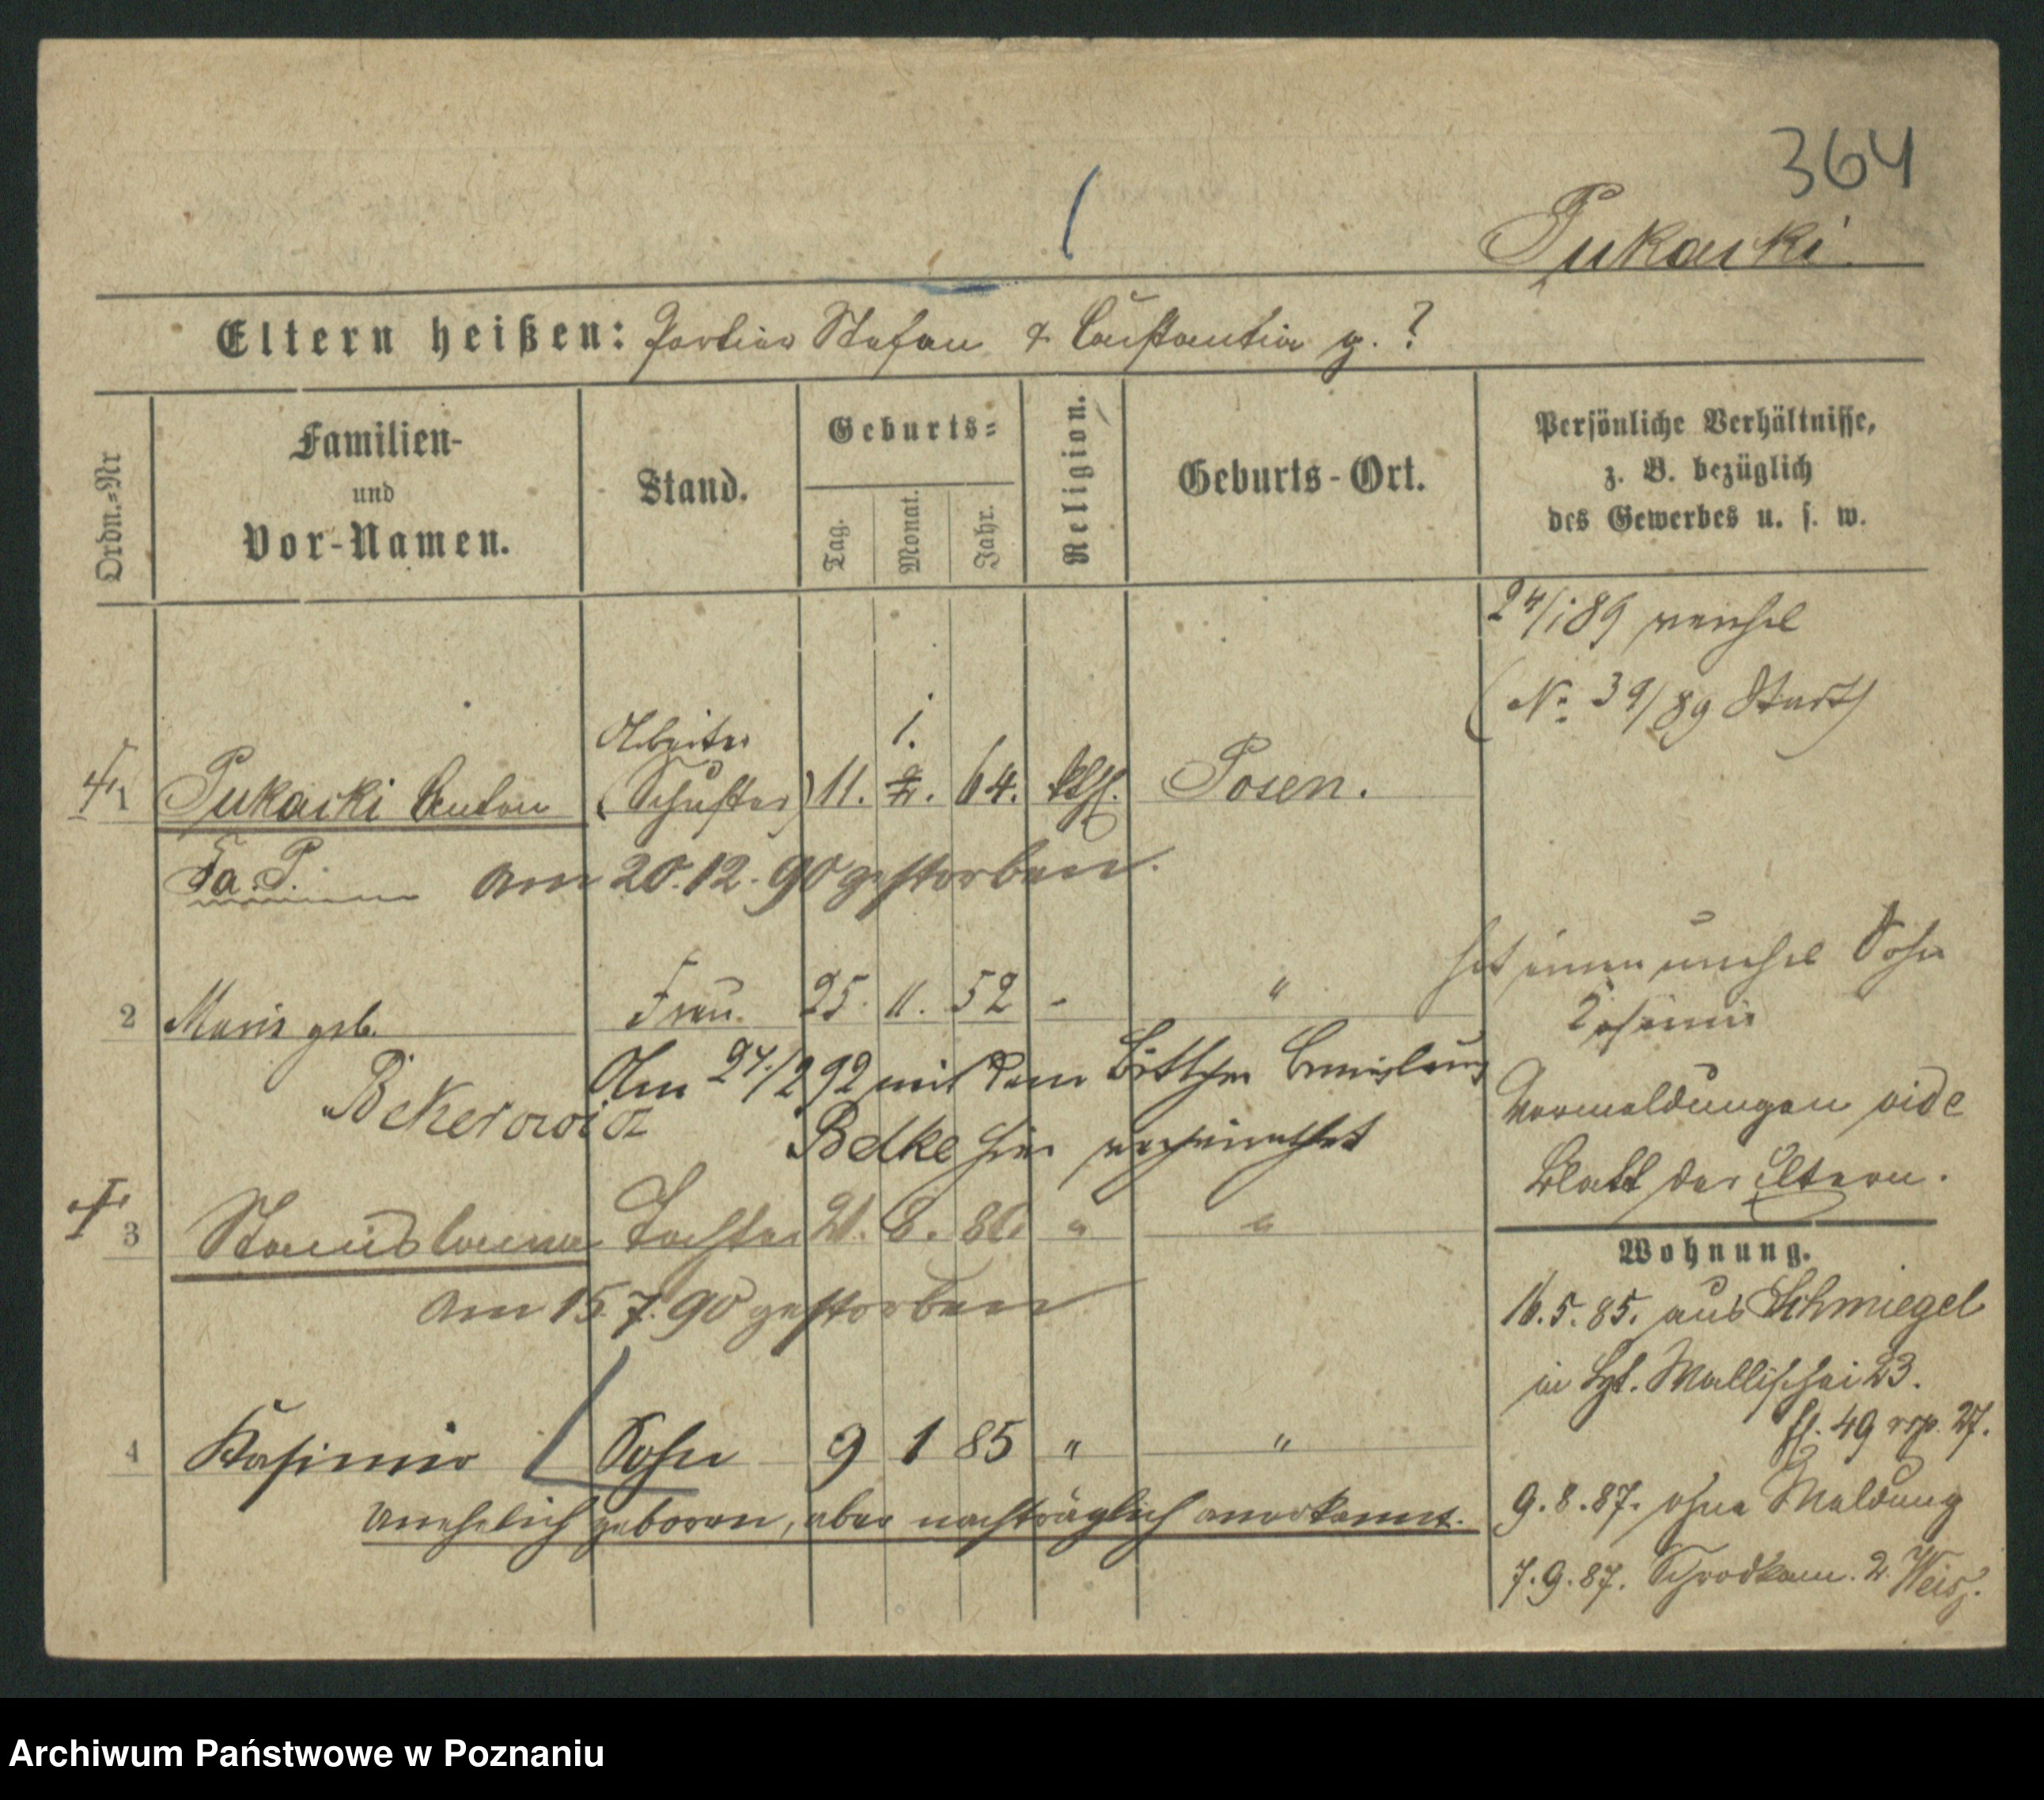 364
Pukacki.
Eltern heißen: Portier Stefan & Constantia g. ?
Ordn.=Nr
Familien- und Vor-Namen.
Stand.
Geburts=
Tag.
Monat.
Jahr.
Religion.
Geburts-Ort.
Persönliche Verhältnisse,
z. B. bezüglich
des Gewerbes u. s. w.
24/1 89
(No 39/89
Arbeiter 1.
1 Pukacki Anton (Schuster) 11. 64. kth. Posen.
Fa. P. am 20.12.90 gestorben.
hat einen unehel Sohn
Kasimir
2 Maria geb. Frau. 25. 11. 52 - "
Bekerowicz
Am 27./2 92 mit dem Böttcher
Belke hier verheirathet
Vormeldungen vide
Blatt der Eltern.
3 Stanislawa Tochter 21. 8. 86 " "
am 15.7.90 gestorben
Wohnung.
16.5.85. aus Schmiegel
in Wallischei 23.
49 rsp. 27.
4 Kasimir Sohn 9 1 85 " "
unehelich geboren, aber nachträglich anerkannt.
9.8.87. ohne Meldung
7.9.87. Schrodkam. 2.
Archiwum Państwowe w Poznaniu